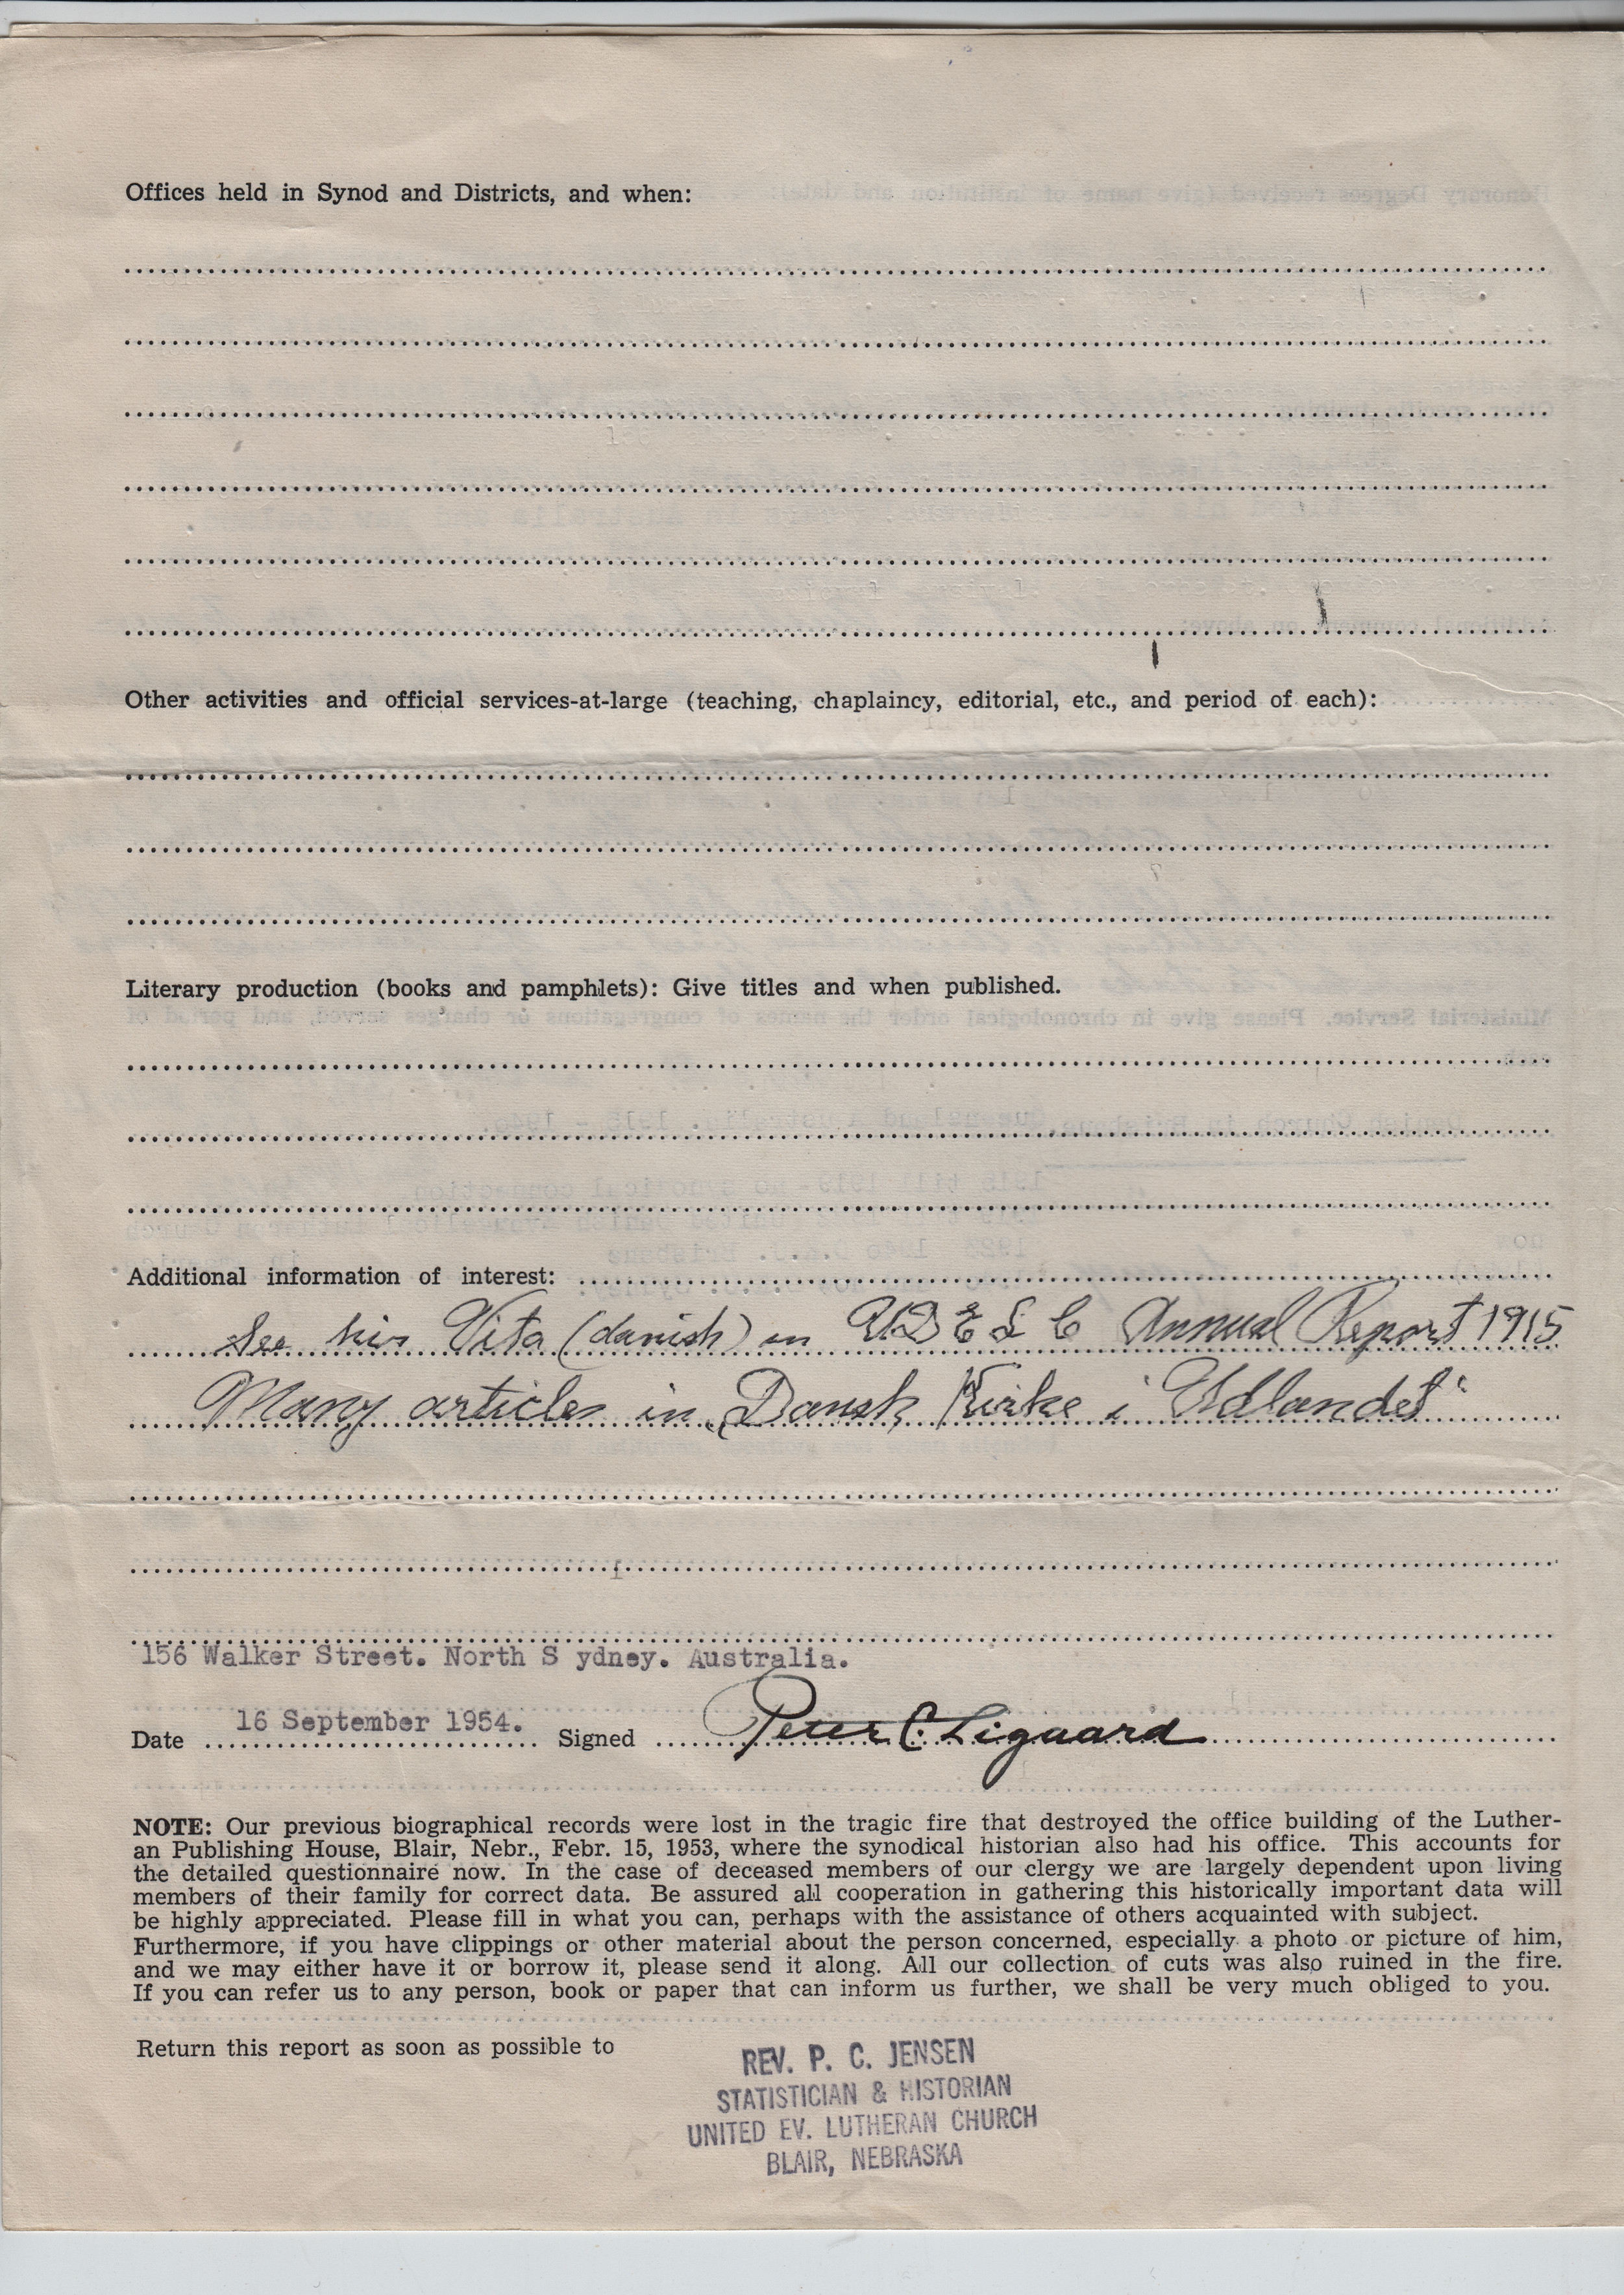 Offices held in Synod and Districts, and when:
Other activities and official services-at-large (teaching, chaplaincy, editorial, etc., and period of each):
Literary production (books and pamphlets): Give titles and when published.
Additional information of interest:
See his Vita (danish) in UDELC Annual Report 1915
Many articles in „Dansk Kirke i Udlandet“
156 Walker Street. North S ydney. Australia.
Date 16 September 1954. Signed Peter C. Ligaard
NOTE: Our previous biographical records were lost in the tragic fire that destroyed the office building of the Luther-
an Publishing House, Blair, Nebr., Febr. 15, 1953, where the synodical historian also had his office. This accounts for
the detailed questionnaire now. In the case of deceased members of our clergy we are largely dependent upon living
members of their family for correct data. Be assured all cooperation in gathering this historically important data will
be highly appreciated. Please fill in what you can, perhaps with the assistance of others acquainted with subject.
Furthermore, if you have clippings or other material about the person concerned, especially a photo or picture of him,
and we may either have it or borrow it, please send it along. All our collection of cuts was also ruined in the fire.
If you can refer us to any person, book or paper that can inform us further, we shall be very much obliged to you.
Return this report as soon as possible to
REV. P. C. JENSEN
STATISTICIAN & HISTORIAN
UNITED EV. LUTHERAN CHURCH
BLAIR, NEBRASKA